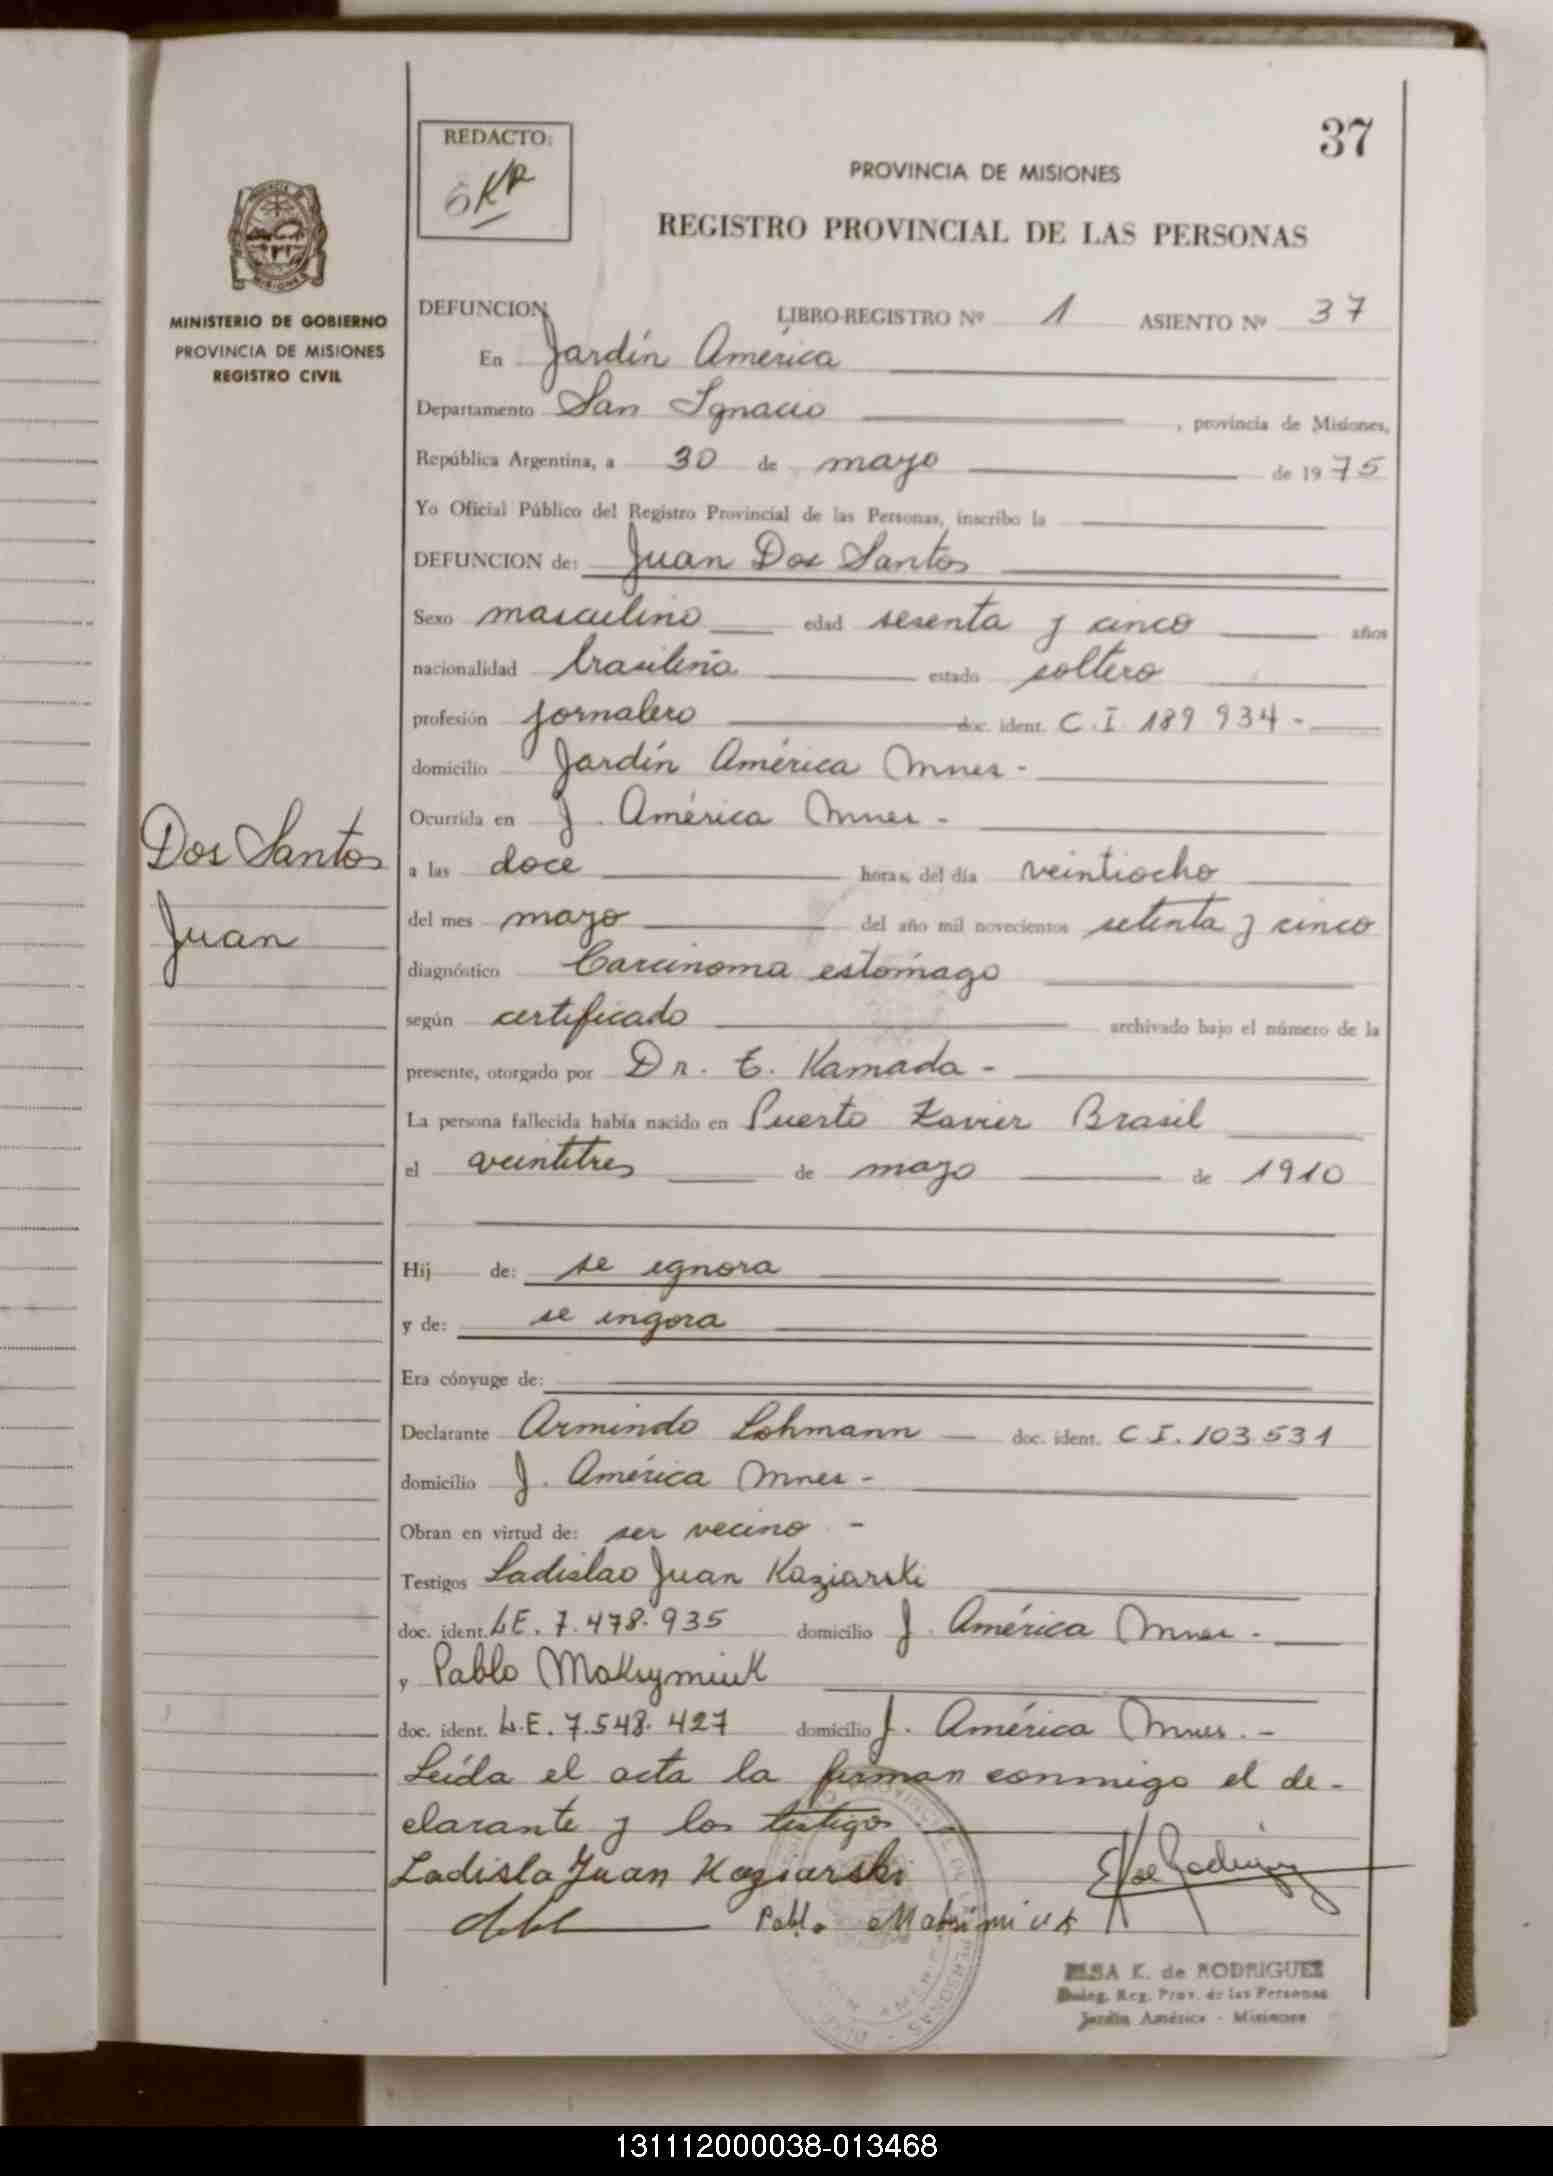 37
REDACTO:
PROVINCIA DE MISIONES
REGISTRO PROVINCIAL DE LAS PERSONAS
MINISTERIO DE GOBIERNO
PROVINCIA DE MISIONES
REGISTRO CIVIL
DEFUNCION LIBRO-REGISTRO Nº 1 ASIENTO Nº 37
En Jardín América
Departamento San Ignacio , provincia de Misiones,
República Argentina, a 30 de mayo de 1975
Yo Oficial Público del Registro Provincial de las Personas, inscribo la
DEFUNCION de: Juan Dos Santos
Sexo masculino edad sesenta y cinco años
nacionalidad brasileña estado soltero
profesión jornalero doc. ident. C.I 189 934 -
domicilio Jardín América Mnes -
Dos Santos
Juan
Ocurrida en J. América Mnes -
a las doce horas, del día veintiocho
del mes mayo del año mil novecientos setenta y cinco
diagnóstico Carcinoma estómago
según certificado archivado bajo el número de la
presente, otorgado por Dr. E. Kamada -
La persona fallecida había nacido en Puerto Xavier Brasil
el veintitres de mayo de 1910
Hij de: se ignora
y de: se ingora
Era cónyuge de:
Declarante Armindo Lohmann doc. ident. C I. 103.531
domicilio J. América Mnes -
Obran en virtud de: ser vecino -
Testigos Ladislao Juan Kaziarski
doc. ident. L.E. 7.478.935 domicilio J. América Mnes -
y Pablo Maksymiuk
doc. ident. L.E. 7.548.427 domicilio J. América Mnes. -
Leída el acta la firman conmigo el de-
clarante y los testigos
Ladisla Juan Koziarski
Pablo Maksimiuk
ELSA K. de RODRIGUEZ
Deleg. Reg. Prov. de las Personas
Jardín América - Misiones
131112000038-013468